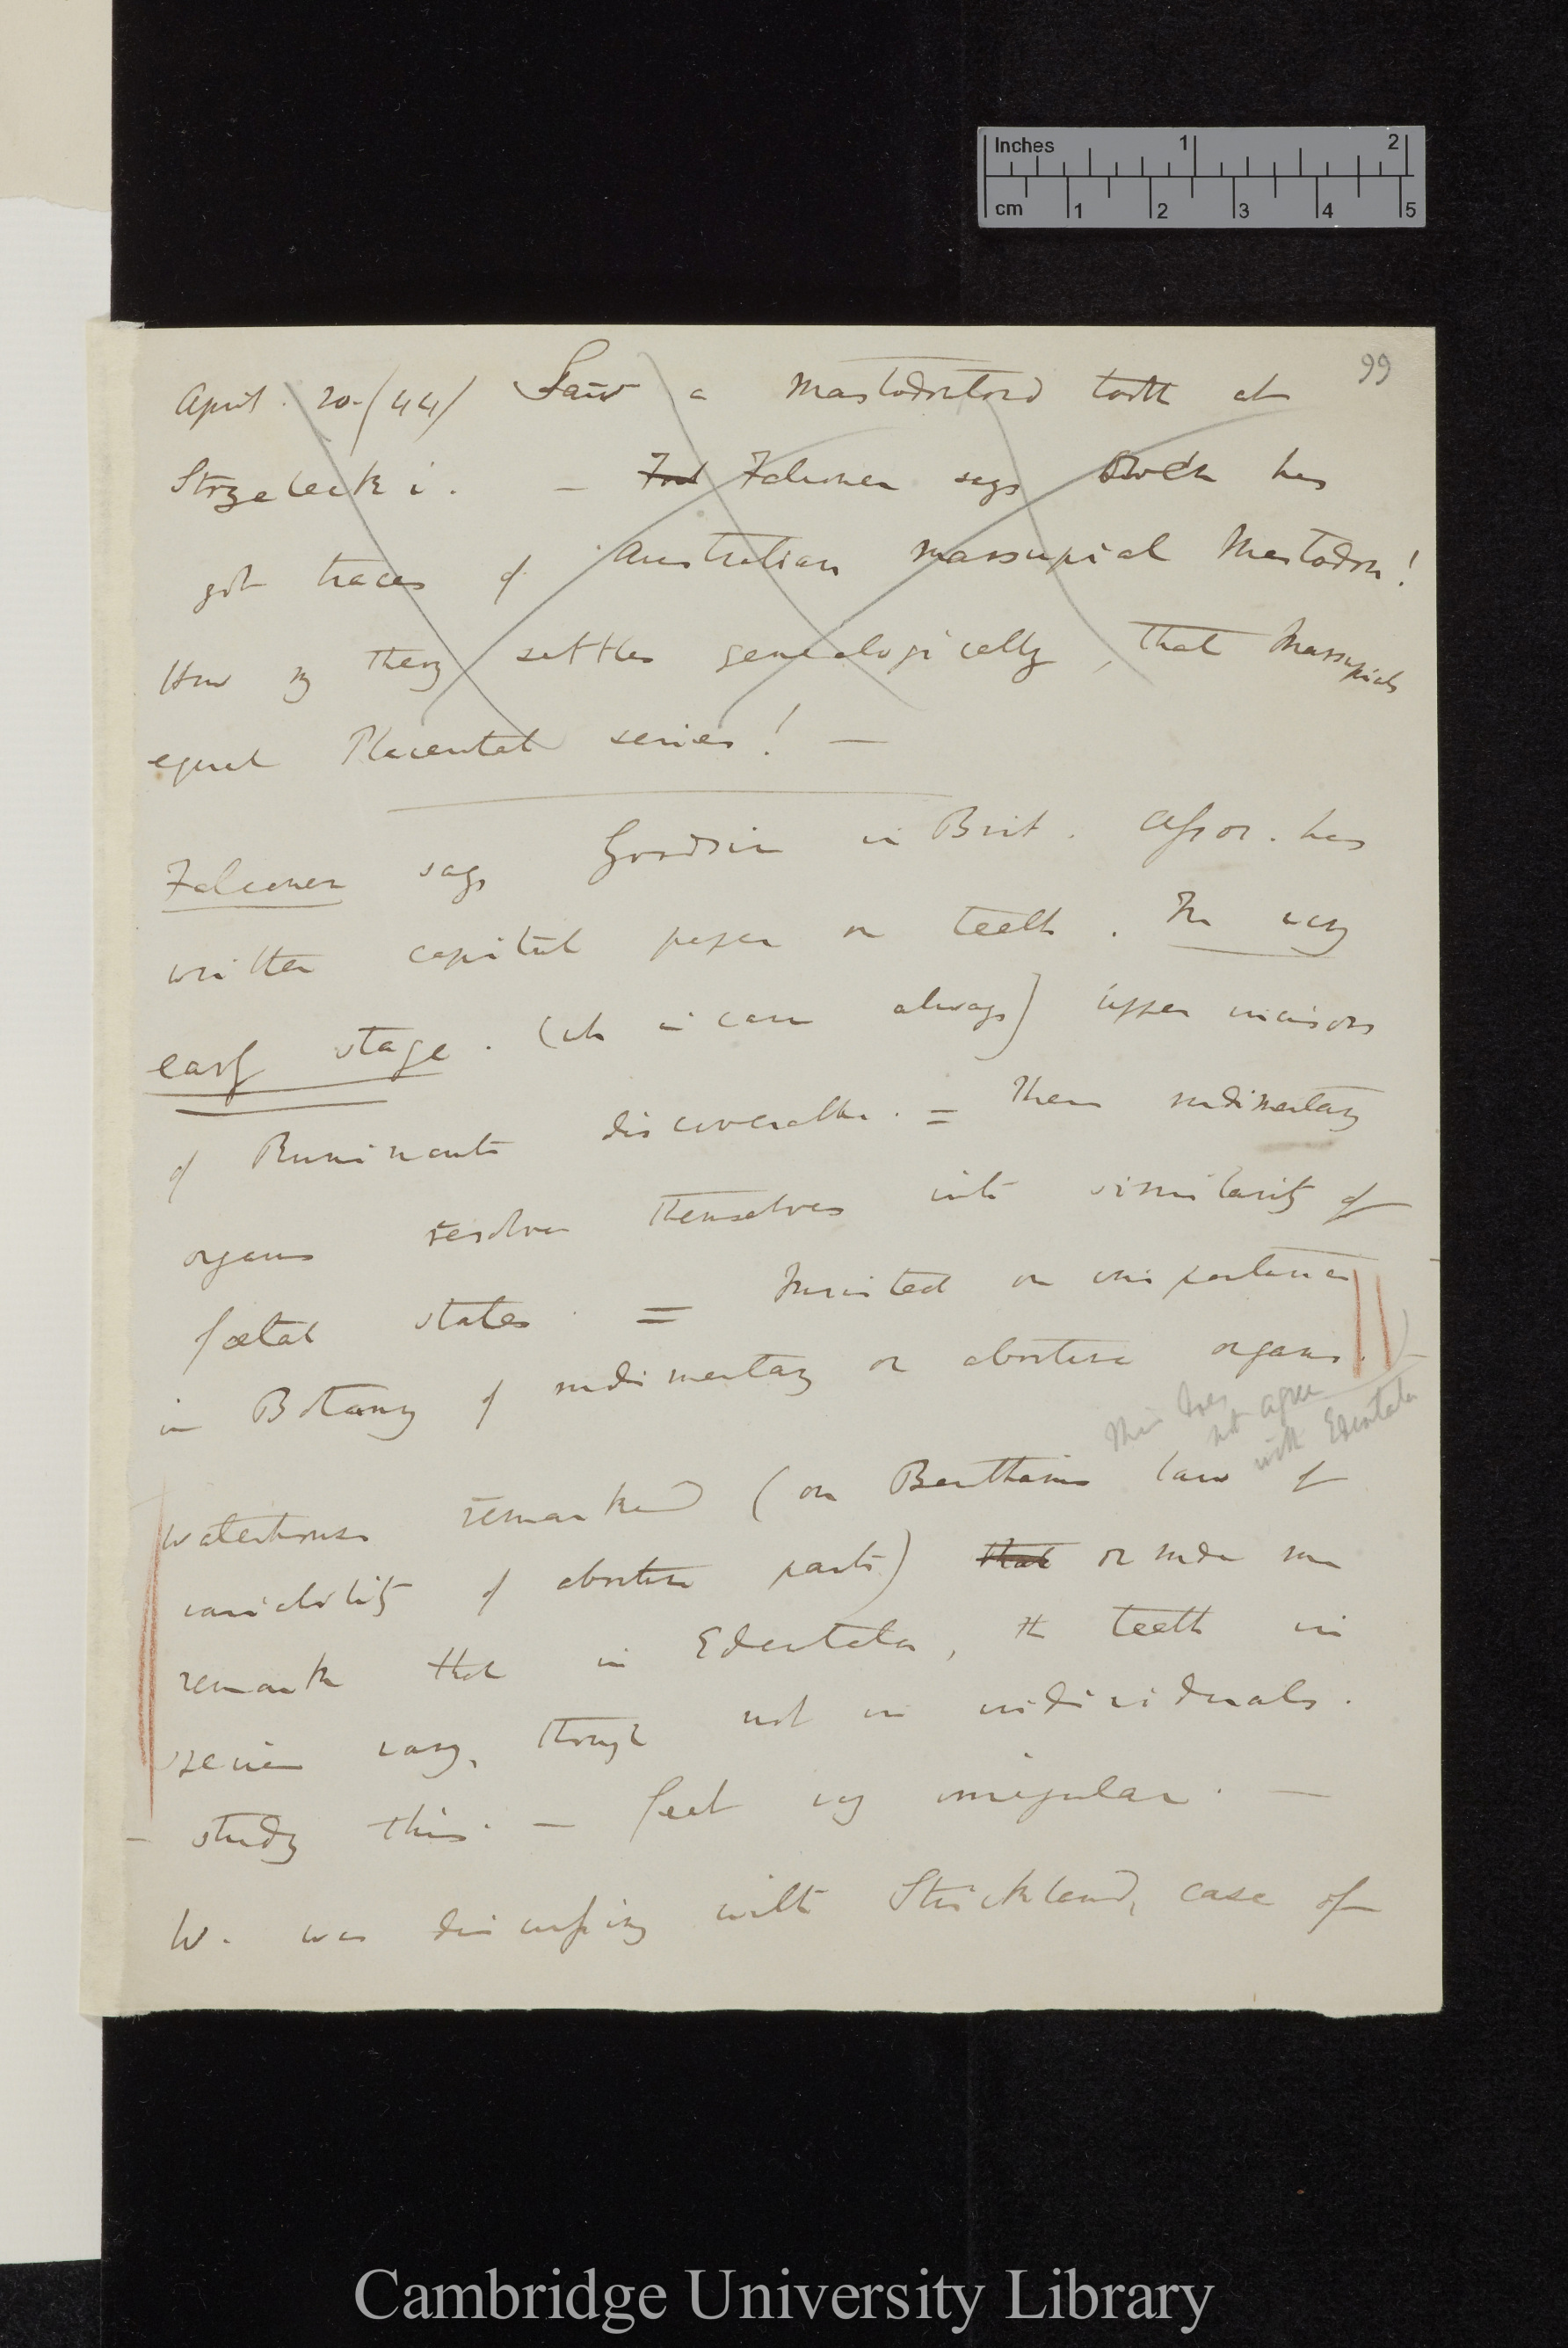 Inches 1 2
cm 1 2 3 4 5
99
April. 20./44/ Saw a Mastodontoid tooth at
Strzelecki. — Falconer says Owen has
got traces of Australian marsupial Mastodon!
How my theory settles genealogically, that Marsupials
equal Placental series! —
Falconer says Goodsir in Brit. Assoc. has
written capital paper on teeth. In very
early stage. (as in cow always) upper incisors
of Ruminants discoverable. = These rudimentary
organs resolve themselves into similarity of
fœtal states. = Insisted on importance
in Botany of rudimentary or abortive organs.
This does
not agree
with Edentata
Waterhouse remarked (on Benthams law of
variability of abortive parts) that or made me
remark that in Edentata, the teeth in
vary, though not in individuals.
— study this. — feet very irregular. —
W. was discussing with Strickland, case of
Cambridge University Library